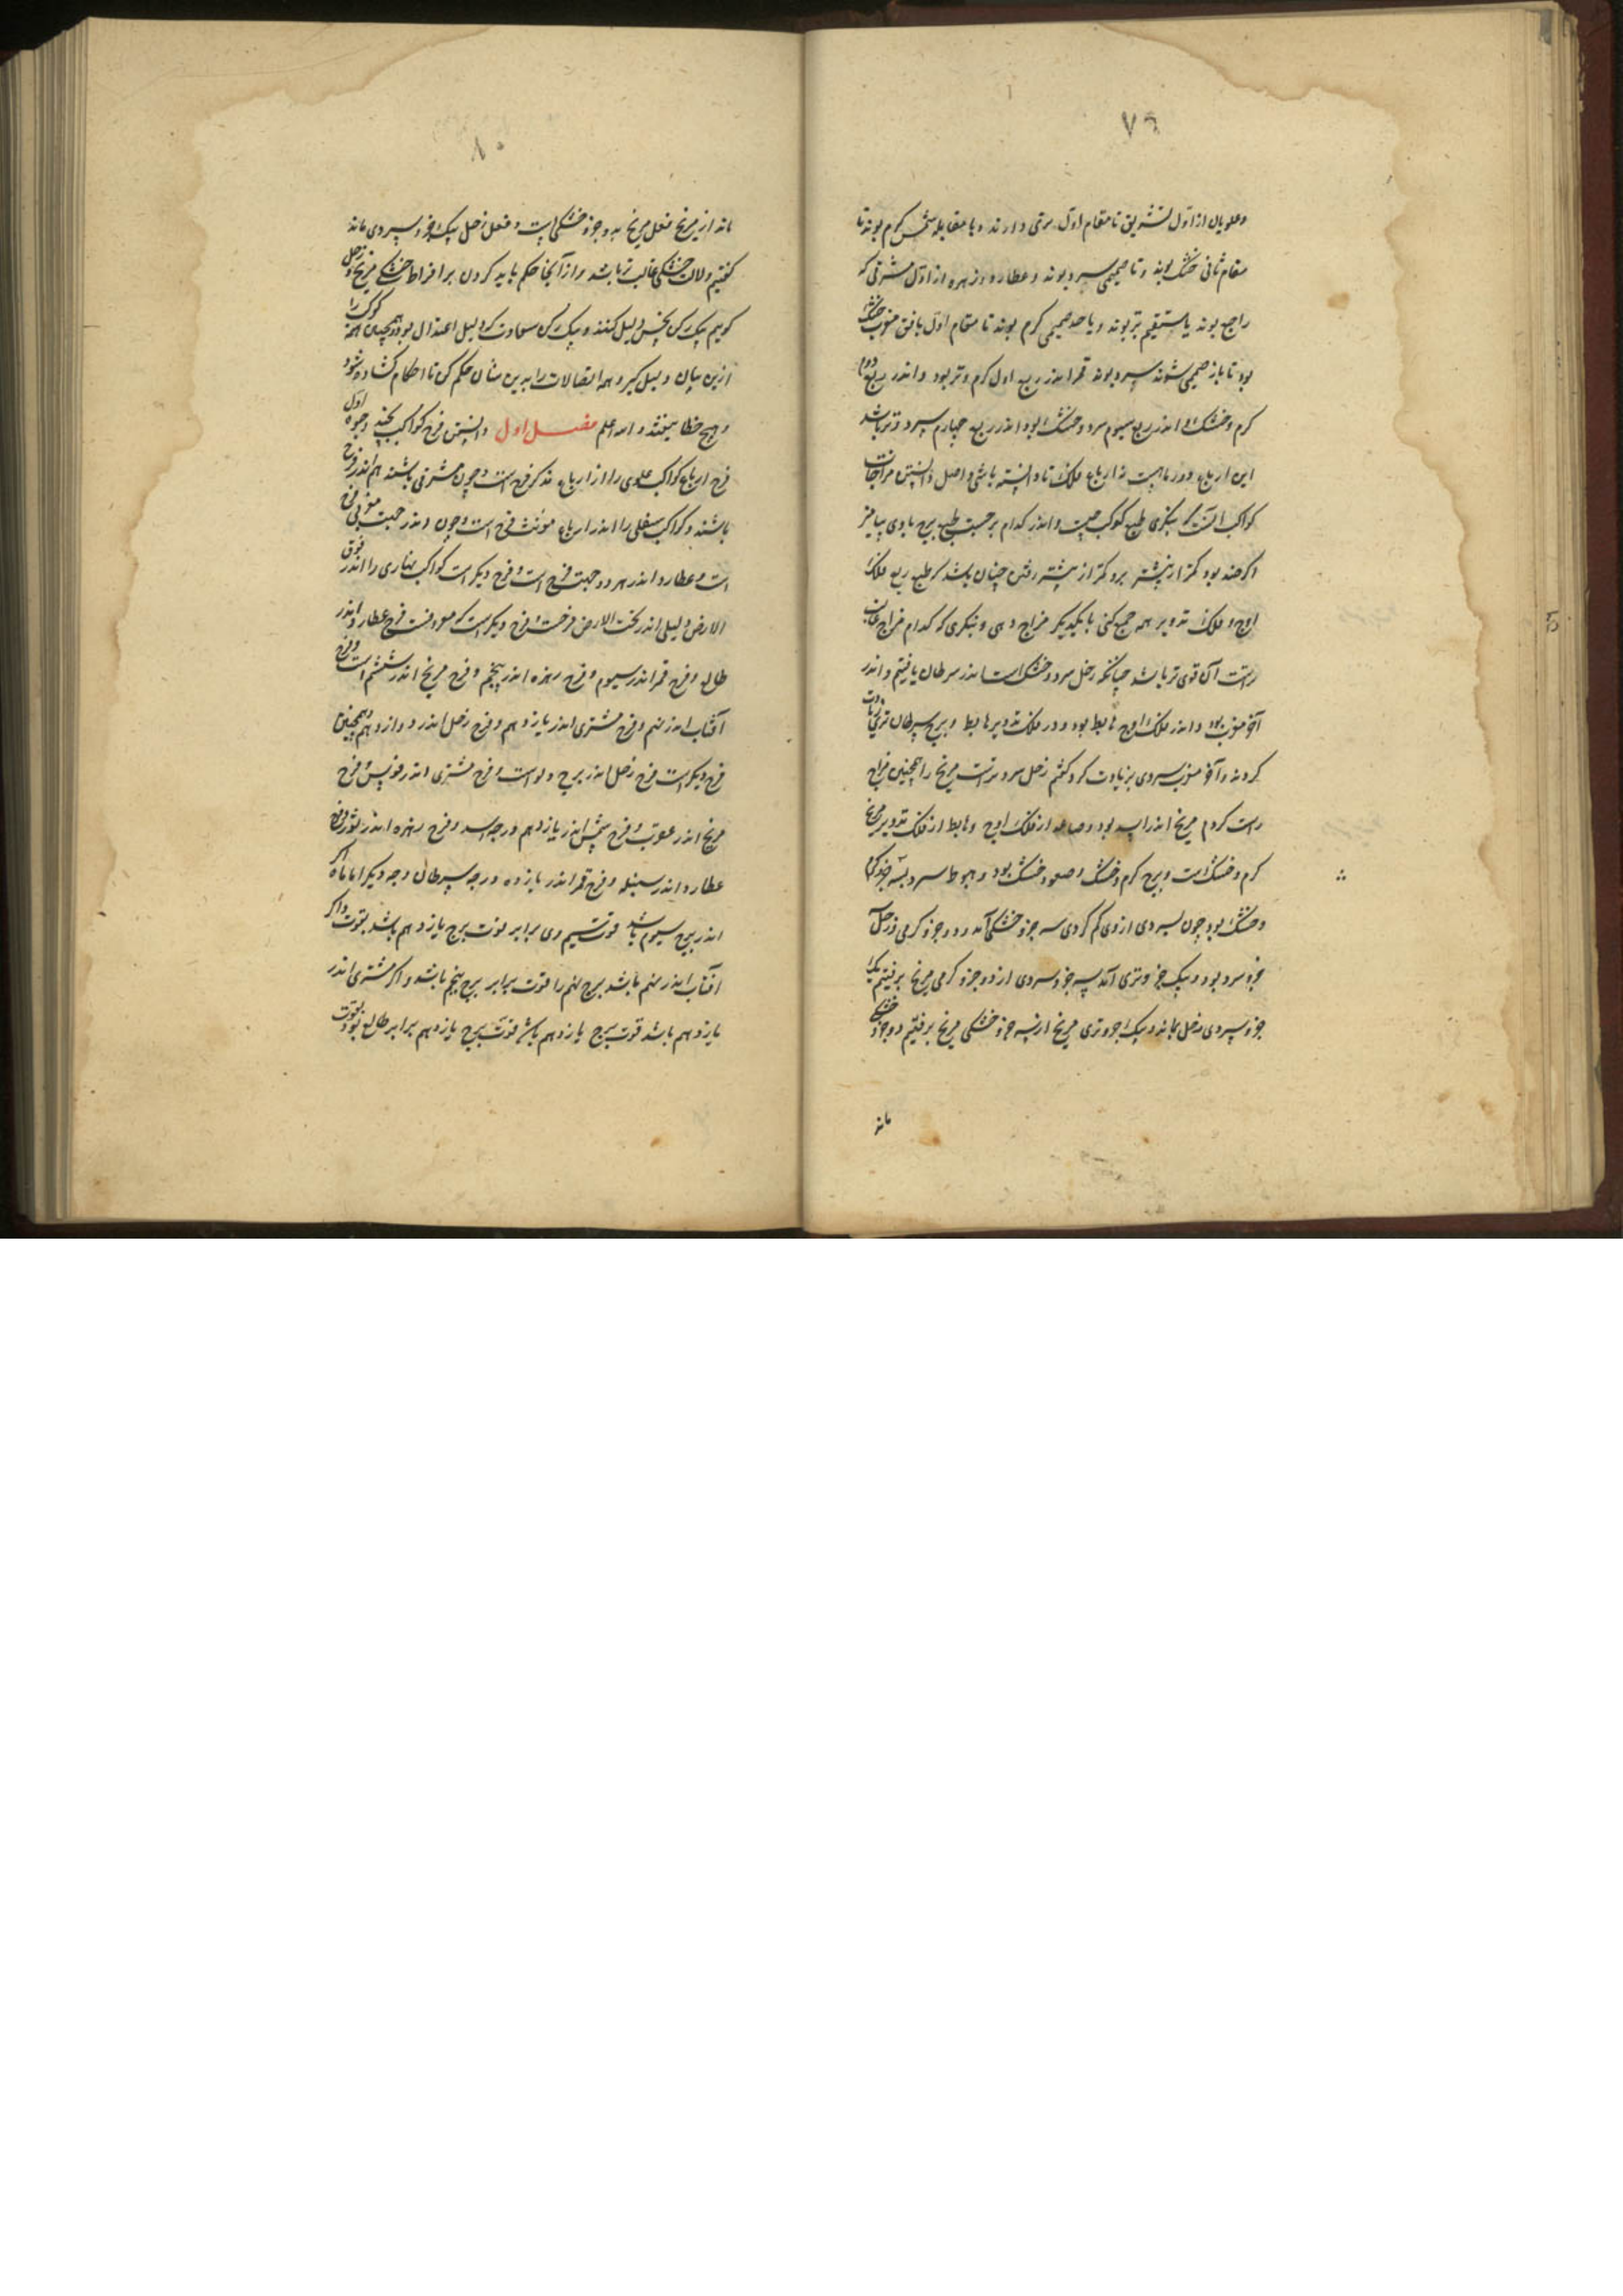 ٧٩
وعلویان از اول تشریق تا مقام اول برتی دارند و با مقابله شمس کرم بوند تا
مقام ثانی خشک بوند و تا صمیمی سرد بوند و عطارد و زهره از اول مشرقی که
راجع بوند یا مستقیم تر بوند و یا حد صمیمی کرم بوند تا مقام اول بافق مغرب خشک
بود تا باز صمیمی شوند سرد بوند قمر اندر ربع اول کرم و تر بود و اندر ربع دوم
کرم و خشک و اندر ربع سیوم سرد و خشک بود اندر ربع چهارم سرد و تر باشد
این ارباع دور ماهست نه ارباع فلک تا دانسته باشی و اصل دانستن مزاجات
کواکب آنست که بنکری طبع کوکب چیست و اندر کدام برجست طبع برج با وی بیامیز
اکر صد بود کمتر از بیشتر برو کمتر از بیشتر رفتن چنان باشد که طبع ربع فلک
اوج و فلک تدویر همه جمع کنی با یکدیکر مزاج دهی و بنکری که کدام مزاج غالب
راست آن قوی تر باشد چنانکه زحل سرد و خشک است اندر سرطان یافتیم و اندر
آخر مغرب بود و اندر فلک اوج هابط بود و در فلک تدویر هابط و برج سرطان تری زیادت
کرد نه و آخر مغرب سردی بزیادت کرد کفتم زحل سرد تر است مریخ را همچنین مزاج
راست کردم مریخ اندر اسد بود و صاعد از فلک اوج و هابط از فلک تدویر مریخ
کرم و خشک است و برج کرم و خشک و صعود خشک بود و هبوط سرد بسه جزو کرم
و خشک بود چون سردی از وی کم کردی سه جزو خشکی آمد و دو جزو کرمی و زحل
جزو سرد بود و یک جزو تری آمد سه جزو سردی از دو جزو کرمی مریخ برفتیم یک
جزو سردی زحل بماند و یک جزو تری مریخ از سه جزو خشکی مریخ برفتیم دو جزو خشکی
ماند
٨٠
ماند از مریخ فعل مریخ به دو جزو خشکی است و فعل زحل یک جزو سردی ماند
کفتیم دلالت خشکی غالب تر باشد و از آنجا حکم باید کردن بر افراط خشکی مریخ و زحل
کوییم یک رکن نحس دلیل کنند و یک رکن سعادت که دلیل اعتدال بود و همچنین همه کوکب را
ازین بیان دلیل کیر و همه اتصالات را بدین سان حکم کن تا احکام کشاده شود
و هیچ خطا نیفتد و الله اعلم فصل اول دانستن فرح کواکب بچند وجوه اول
فرح ارباع کواکب علوی را از ارباع مذکر فرح است و چون مشرقی باشند هم اندر فرح
باشند و کواکب سفلی را اندر ارباع مؤنث فرح است و چون اندر جهت مغربی فرح
است و عطارد اندر هر دو جهت فرح است و فرح دیکر است کواکب نهاری را اندر فوق
الارض و لیلی اندر تحت الارض فرحست و فرح دیکر است که معروفست فرح عطارد اندر
طالع و فرح قمر اندر سیوم و فرح زهره اندر پنجم و فرح مریخ اندر ششم است و فرح
آفتاب اندر نهم و فرح مشتری اندر یازدهم و فرح زحل اندر دوازدهم و همچنین
فرح دیکر است فرح زحل اندر برج دلو است و فرح مشتری اندر قوس و فرح
مریخ اندر عقرب و فرح شمس اندر یازدهم درجه اسد و فرح زهره اندر ثور و فرح
عطارد اندر سنبله و فرح قمر اندر یازده درجه سرطان وجه دیکر اما ماه اکر
اندر برج سیوم باشد قوت سیم وی برابر قوت برج یازدهم باشد بقوت و اکر
آفتاب اندر نهم باشد برج نهم را قوت برابر برج پنجم باشد و اکر مشتری اندر
یازدهم باشد قوت برج یازدهم باشد قوت برج یازدهم برابر طالع بود بقوت